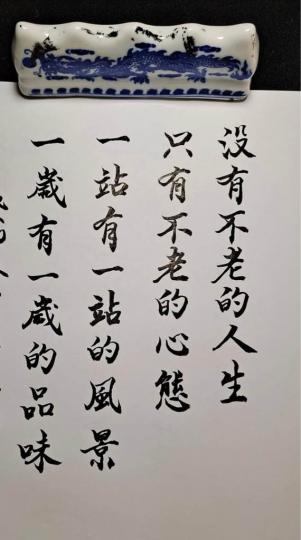 没有不老的人生
只有不老的心態
一站有一站的風景
一歲有一歲的品味